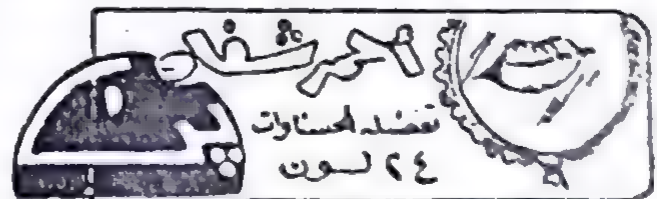 احمر شفاه
تفضله الحسناوات
٢٤ لون